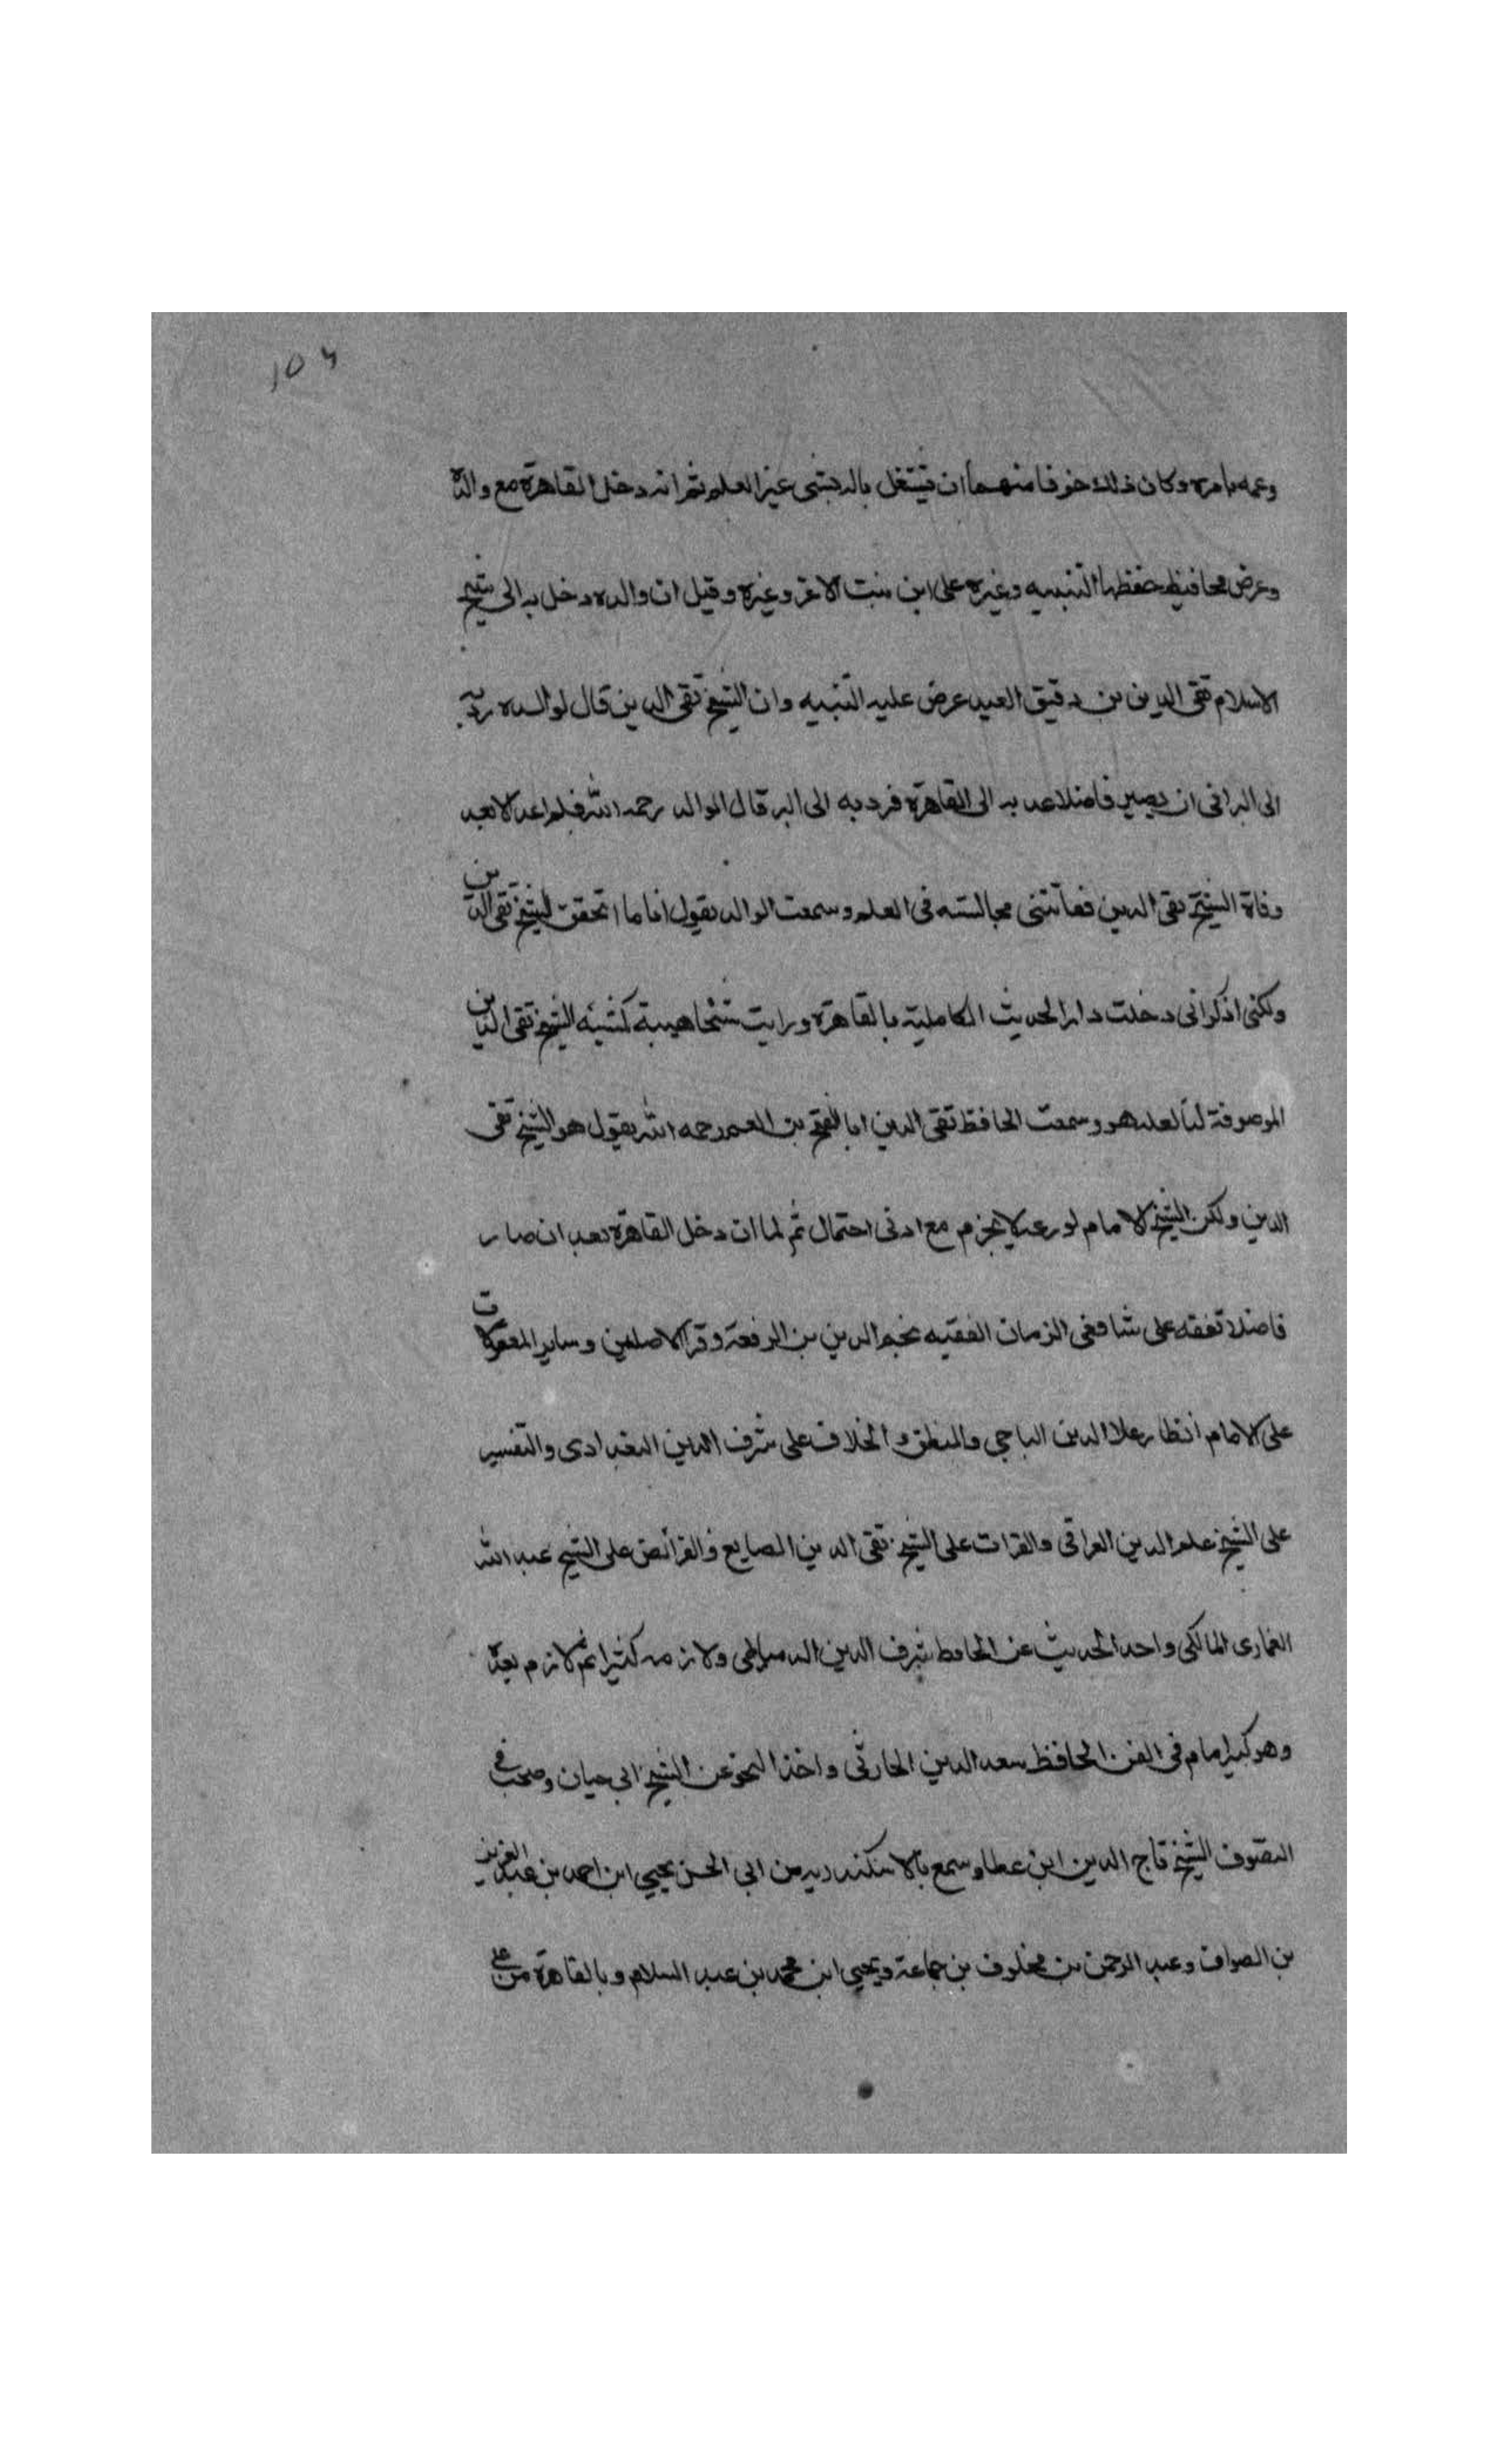 ١٥٤
وعمه يامره وكان ذلك خوفا منهما ان يشتغل باله بشي غير العلم ثم انه دخل القاهرة مع والده
وعرض محافيظ حفظها التنبيه وغيره على ابن بنت الاعز وغيره وقيل ان والده دخل به الى شيخ
الاسلام تقى الدين بن دقيق العيد عرض عليه التنبيه وان الشيخ تقى الدين قال لوالده رد به
الى البر الى ان يصير فاضلا عد به الى القاهرة فرد به الى البر قال الوالد رحمه الله فلم اعد الا بعد
وفاة الشيخ تقى الدين ففاتتنى مجالسته فى العلم وسمعت الوالد يقول انا ما اتحقق الشيخ تقى الدين
ولكنى اذكر انى دخلت دار الحديث الكاملية بالقاهرة ورايت شخا هيبة كشيئه الشيخ تقى الدين
الموصوفة لنا لعله هو وسمعت الحافظ تقى الدين ابا الفتح بن العم رحمه الله يقول هو الشيخ تقى
الدين ولكن الشيخ الامام لورعه لا يجزم مع ادنى احتمال ثم لما ان دخل القاهرة بعد ان صار
فاضلا تفقه على شافعى الزمان الفقيه نجم الدين بن الرفعة وقرا الاصلين وساير المعقولات
على الامام انظار علا الدين الباجي والمنطق والخلاف على شرف الدين البغدادى والتفسير
على الشيخ علم الدين العراقى والقرات على الشيخ تقى الدين الصايع والفرائض على الشيخ عبد الله
الغمارى المالكى واحد الحديث عن الحافظ شرف الدين الدمياطى ولازمه كثيرا ثم لازم بعده
وهو كبير امام فى الفن الحافظ سعد الدين الحارثى واخذ النحو عن الشيخ ابى حيان وصحب فى
التصوف الشيخ تاج الدين ابن عطا وسمع بالاسكندريه من ابي الحسن يحيي ابن احمد بن عبد العزيز
بن الصواف وعبد الرحمن بن مخلوف بن جماعة ويحيي ابن محمد بن عبد السلام وبالقاهرة من على